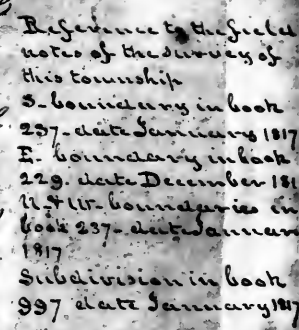 Reference to the field
notes of the survey of
this township
S. boundary in book
237 - date January 1817
E. boundary in book
229. date December 181
N. & W. boundaries in
book 237 - date Januar
1817
Subdivision in book
997 date January 1817